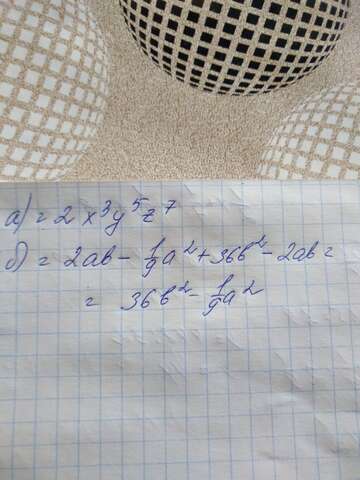 а) = 2x³y⁵z⁷
б) = 2ab - 1/9a² + 36b² - 2ab =
= 36b² - 1/9a²